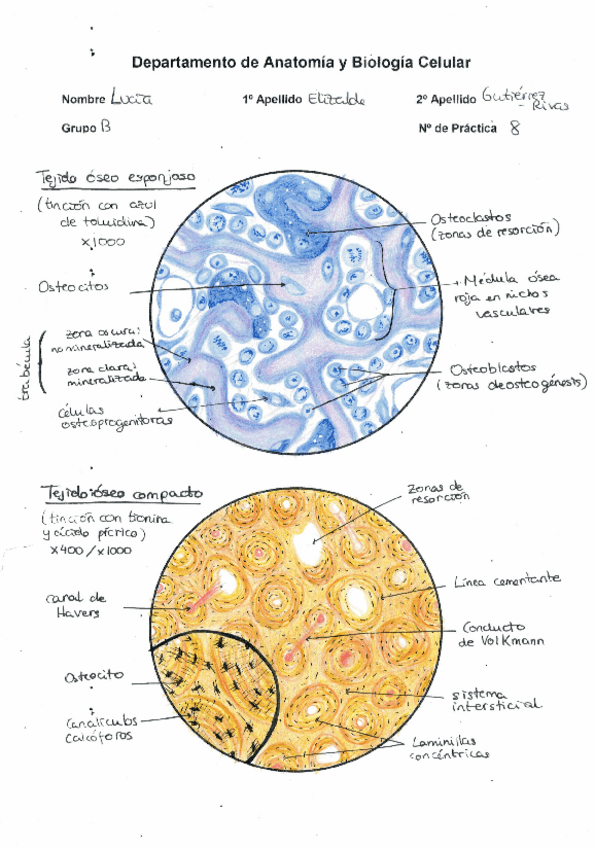 Departamento de Anatomía y Biología Celular
Nombre Lucía 1º Apellido Elizalde 2º Apellido Gutiérrez-Rivas
Grupo B Nº de Práctica 8
Tejido óseo esponjoso
(tinción con azul
de toluidina)
x1000
Osteocitos
trabécula
zona oscura:
no mineralizada
zona clara:
mineralizada
células
osteoprogenitoras
Osteoclastos
(zonas de resorción)
Médula ósea
roja en nichos
vasculares
Osteoblastos
(zonas de osteogénesis)
Tejido óseo compacto
(tinción con tionina
y ácido pícrico)
x400/x1000
canal de
Havers
Osteocito
Canalículos
calcóforos
zonas de
resorción
Línea cementante
Conducto
de Volkmann
sistema
intersticial
Laminillas
concéntricas